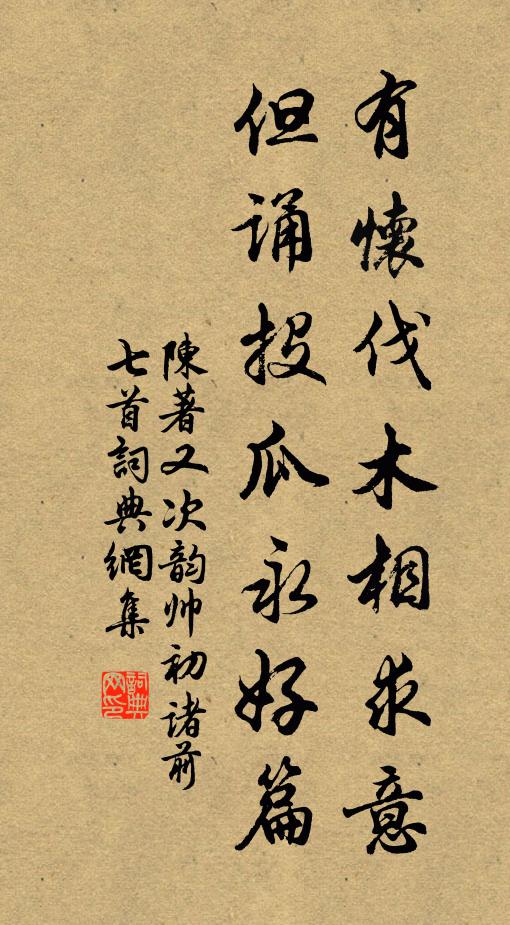 有懷伐木相求意
但诵投瓜永好篇
陳著又次韵帅初诸前
七首詞典網集
詞典网印